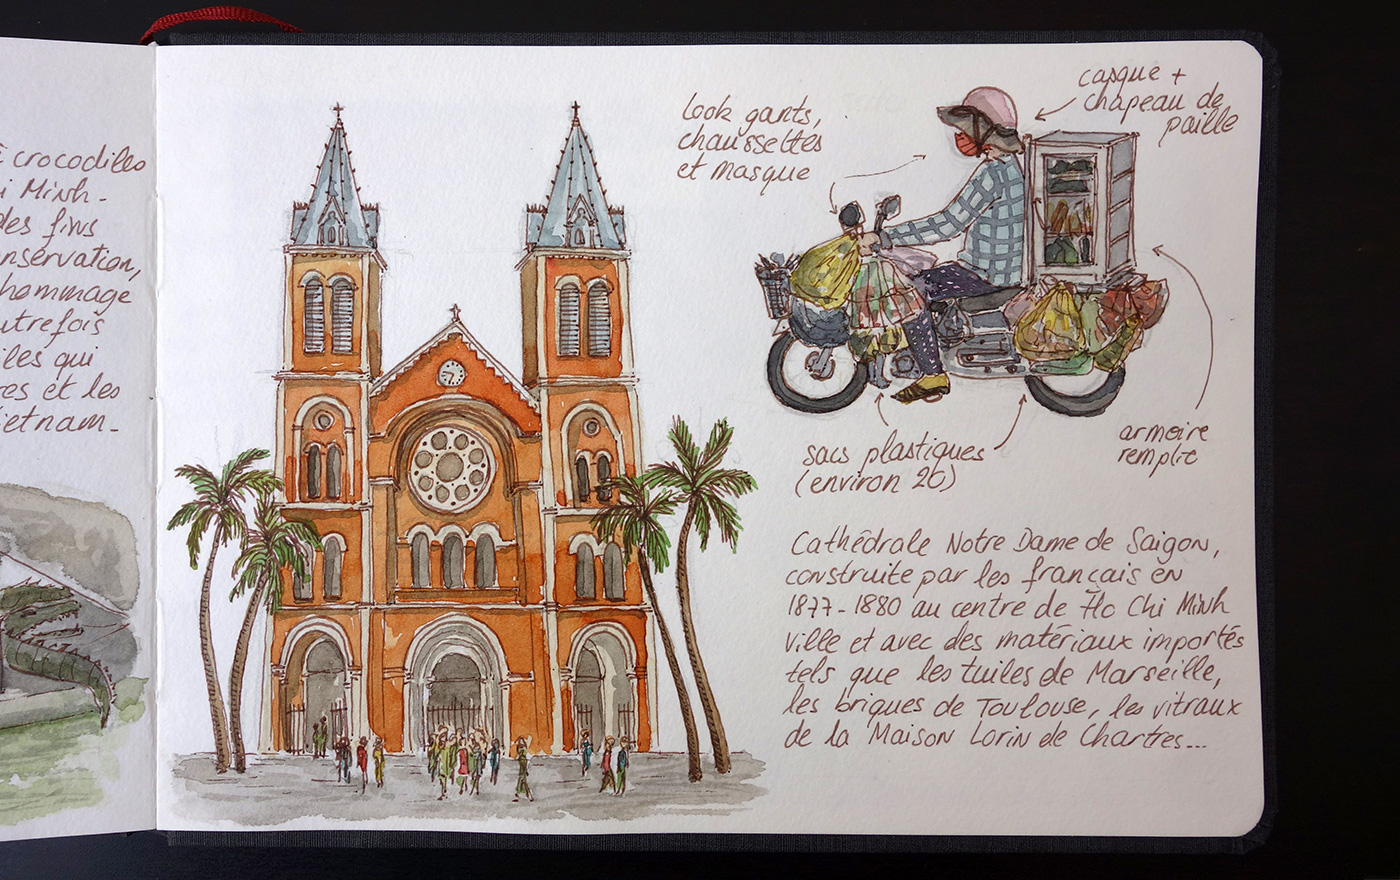 crocodiles
Minh-
des fins
hommage
autrefois
qui
et les
look gants,
chaussettes
et masque
casque +
chapeau de
paille
sacs plastiques
(environ 20)
armoire
remplie
Cathédrale Notre Dame de Saigon,
construite par les français en
1877-1880 au centre de Ho Chi Minh
ville et avec des matériaux importés
tels que les tuiles de Marseille,
les briques de Toulouse, les vitraux
de la Maison Lorin de Chartres...